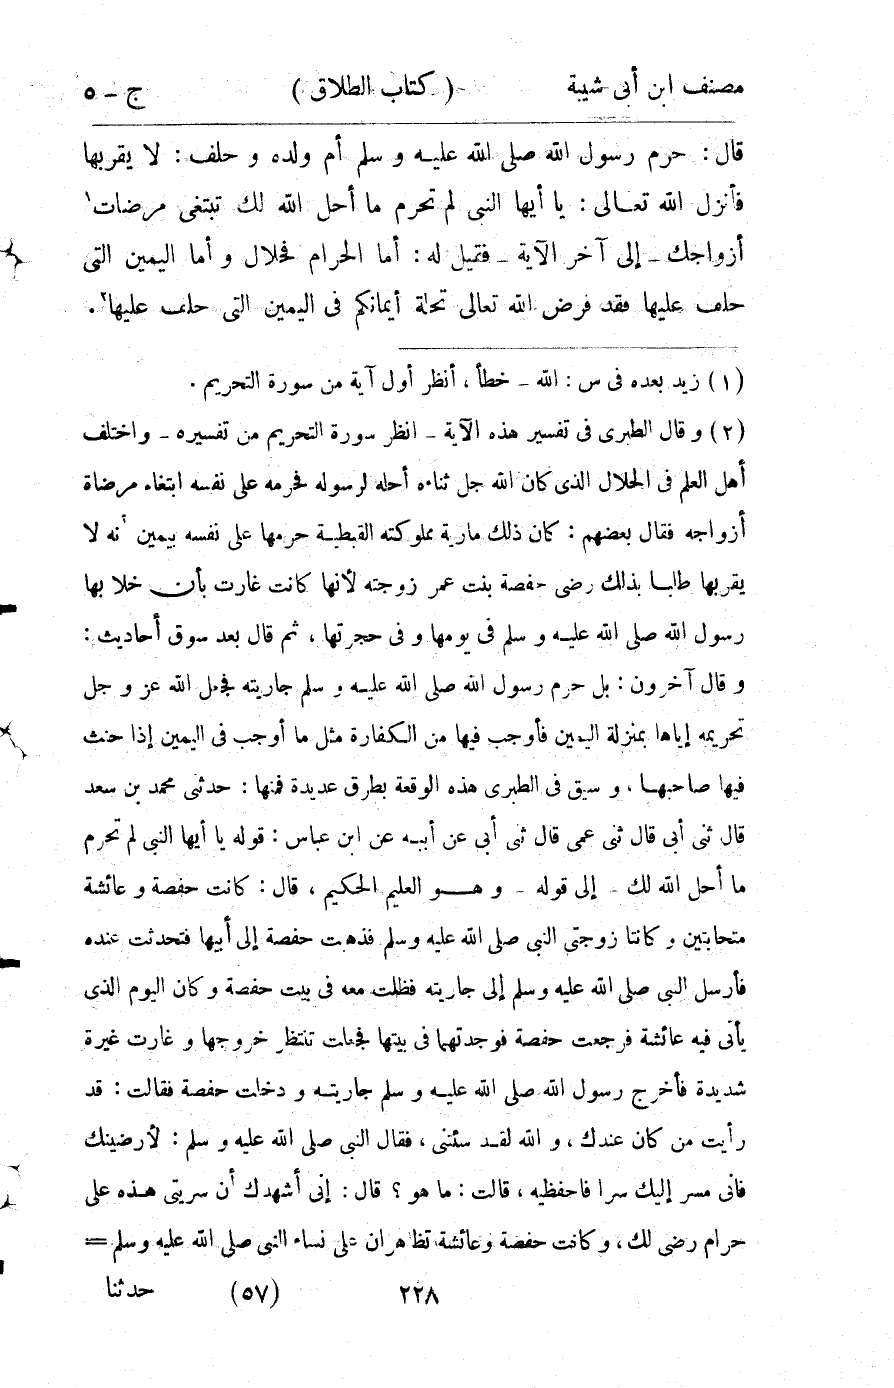 مصنف ابن أبى شيبة ( كتاب الطلاق ) ج ـ ٥
قال : حرم رسول الله صلى الله عليه و سلم أم ولده و حلف : لا يقربها
فأنزل الله تعالى : يا أيها النبى لم تحرم ما أحل الله لك تبتغى مرضات١
أزواجك ـ إلى آخر الآية ـ فقيل له : أما الحرام فحلال و أما اليمين التى
حلف عليها فقد فرض الله تعالى تحلة أيمانكم فى اليمين التى حلف عليها٢ .
(١) زيد بعده فى س : الله ـ خطأ ، أنظر أول آية من سورة التحريم .
(٢) و قال الطبرى فى تفسير هذه الآية ـ انظر سورة التحريم من تفسيره ـ واختلف
أهل العلم فى الحلال الذى كان الله جل ثناءه أحله لرسوله فحرمه على نفسه ابتغاء مرضاة
أزواجه فقال بعضهم : كان ذلك مارية مملوكته القبطية حرمها على نفسه بيمين أنه لا
يقربها طالبا بذلك رضى حفصة بنت عمر زوجته لأنها كانت غارت بأن خلا بها
رسول الله صلى الله عليه و سلم فى يومها و فى حجرتها ، ثم قال بعد سوق أحاديث :
و قال آخرون : بل حرم رسول الله صلى الله عليه و سلم جاريته فجعل الله عز و جل
تحريمه إياها بمنزلة اليمين فأوجب فيها من الكفارة مثل ما أوجب فى اليمين إذا حنث
فيها صاحبها ، و سيق فى الطبرى هذه الوقعة بطرق عديدة فمنها : حدثنى محمد بن سعد
قال ثنى أبى قال ثنى عمى قال ثنى أبى عن أبيه عن ابن عباس : قوله يا أيها النبى لم تحرم
ما أحل الله لك ـ إلى قوله ـ و هو العليم الحكيم ، قال : كانت حفصة و عائشة
متحابتين و كانتا زوجتى النبى صلى الله عليه وسلم فذهبت حفصة إلى أبيها فتحدثت عنده
فأرسل النبى صلى الله عليه وسلم إلى جاريته فظلت معه فى بيت حفصة و كان اليوم الذى
يأتى فيه عائشة فرجعت حفصة فوجدتهما فى بيتها فجعلت تنتظر خروجها و غارت غيرة
شديدة فأخرج رسول الله صلى الله عليه و سلم جاريته و دخلت حفصة فقالت : قد
رأيت من كان عندك ، و الله لقد سئتنى ، فقال النبى صلى الله عليه و سلم : لأرضينك
فانى مسر إليك سرا فاحفظيه ، قالت : ما هو ؟ قال : إنى أشهدك أن سريتى هذه على
حرام رضى لك ، و كانت حفصة وعائشة تظاهران على نساء النبى صلى الله عليه وسلم =
٢٢٨ (٥٧) حدثنا